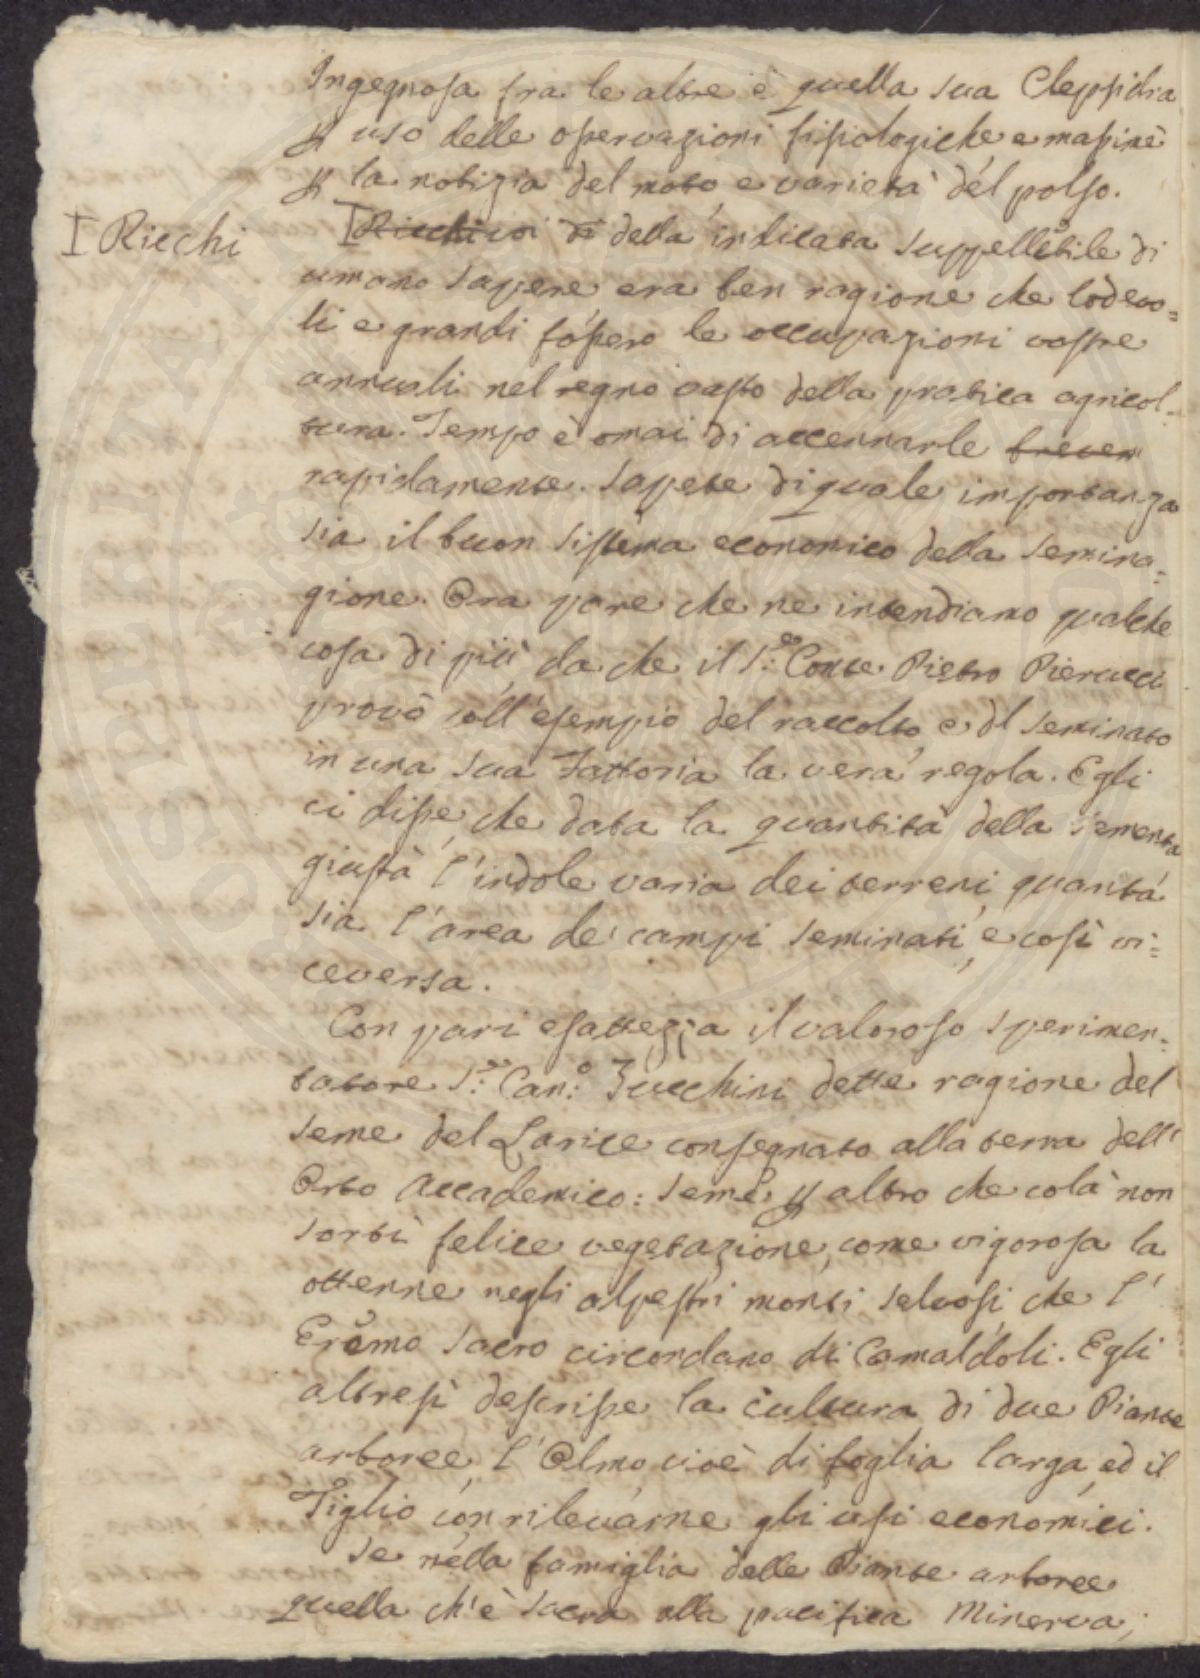 Ingegnosa fra le altre è quella sua Clepsidra
ꝑ uso delle osservazioni fisiologiche e massimè
ꝑ la notizia del moto, e varietà del polso.
I Ricchi
I Ricchi voi di della indicata suppellettile di
umano sapere era ben ragione che lodevo=
li e grandi fossero le occupazioni vostre
annuali nel regno vasto della pratica agricol=
tura. Tempo è omai di accennarle brevem
rapidamente. Sapete di quale importanza
sia il buon sistema economico della semina=
gione. Ora pare che ne intendiamo qualche
cosa di più, da che il S.r Conte Pietro Pierucci
provò coll'esempio del raccolto, e dl seminato
in una sua Fattoria la vera regola. Egli
ci disse, che data la quantità della sementa
giusta l'indole varia dei terreni, quanta
sia l'area de' campi seminati, e così vi=
ceversa.
Con pari esattezza il valoroso sperimen=
tatore S.r Can.o Zucchini dette ragione del
seme del Larice consegnato alla terra dell'
Orto Accademico: seme ꝑ altro che colà non
sortì felice vegetazione, come vigorosa la
ottenne negli alpestri monti selvosi, che l'
Eremo sacro circondano di Camaldoli. Egli
altresì descrisse la cultura di due Piante
arboree, l'Olmo cioè di foglia larga, ed il
Tiglio con rilevarne gli usi economici.
Se nella famiglia delle Piante arboree
quella ch'è sacra alla pacifica Minerva,